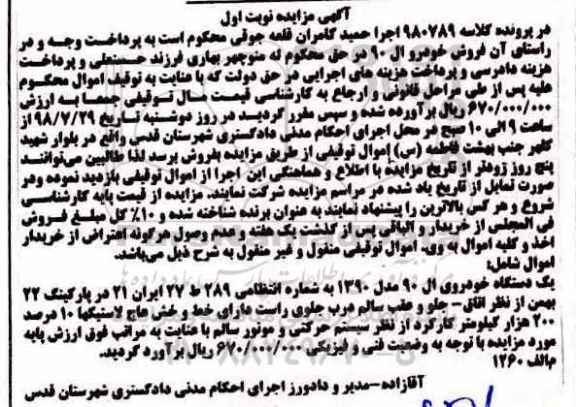 آگهی مزایده نوبت اول
در پرونده کلاسه ۹۸۰۷۸۹ اجرا حمید کامران قلعه جوقی محکوم است به پرداخت وجه و در
راستای آن فروش خودرو ال ۹۰ در حق محکوم له منوچهر بهاری فرزند حسنعلی و پرداخت
هزینه دادرسی و پرداخت هزینه های اجرایی در حق دولت که با عنایت به توقیف اموال محکوم
علیه پس از طی مراحل قانونی و ارجاع به کارشناسی قیمت مال توقیفی جمعا به ارزش
۶۷۰/۰۰۰/۰۰۰ ریال برآورده شده و سپس مقرر گردید در روز دوشنبه تاریخ ۹۸/۷/۲۹ از
ساعت ۹ الی ۱۰ صبح در محل اجرای احکام مدنی دادگستری شهرستان قدس واقع در بلوار شهید
کلهر جنب بهشت فاطمه (س) اموال توقیفی از طریق مزایده بفروش برسد لذا طالبین می‌توانند
پنج روز زودتر از تاریخ مزایده با اطلاع و هماهنگی این اجرا از اموال توقیفی بازدید نموده ودر
صورت تمایل از تاریخ یاد شده در مراسم مزایده شرکت نمایند. مزایده از قیمت پایه کارشناسی
شروع و هر کس بالاترین را پیشنهاد نمایند به عنوان برنده شناخته شده و ۱۰٪ کل مبلغ فروش
فی المجلس از خریدار و الباقی پس از گذشت یک هفته و عدم وصول هرگونه اعتراض از خریدار
اخذ و کلیه اموال به ویه اموال توقیفی منقول و غیر منقول به شرح ذیل می‌باشد.
اموال شامل:
یک دستگاه خودروی ال ۹۰ مدل ۱۳۹۰ به شماره انتظامی ۲۸۹ ط ۲۷ ایران ۲۱ در پارکینگ ۲۲
بهمن از نظر اتاق- جلو و عقب سالم درب جلوی راست دارای خط و خش عاج لاستیکها ۱۰ درصد
۲۰۰ هزار کیلومتر کارکرد از نظر سیستم حرکتی و موتور سالم با عنایت به مراتب فوق ارزش پایه
مورد مزایده با توجه به وضعیت فنی و فیزیکی ۶۷۰/۰۰۰/۰۰۰ ریال برآورد گردید.
م‌الف ۱۲۶۰
آقازاده-مدیر و دادورز اجرای احکام مدنی دادگستری شهرستان قدس